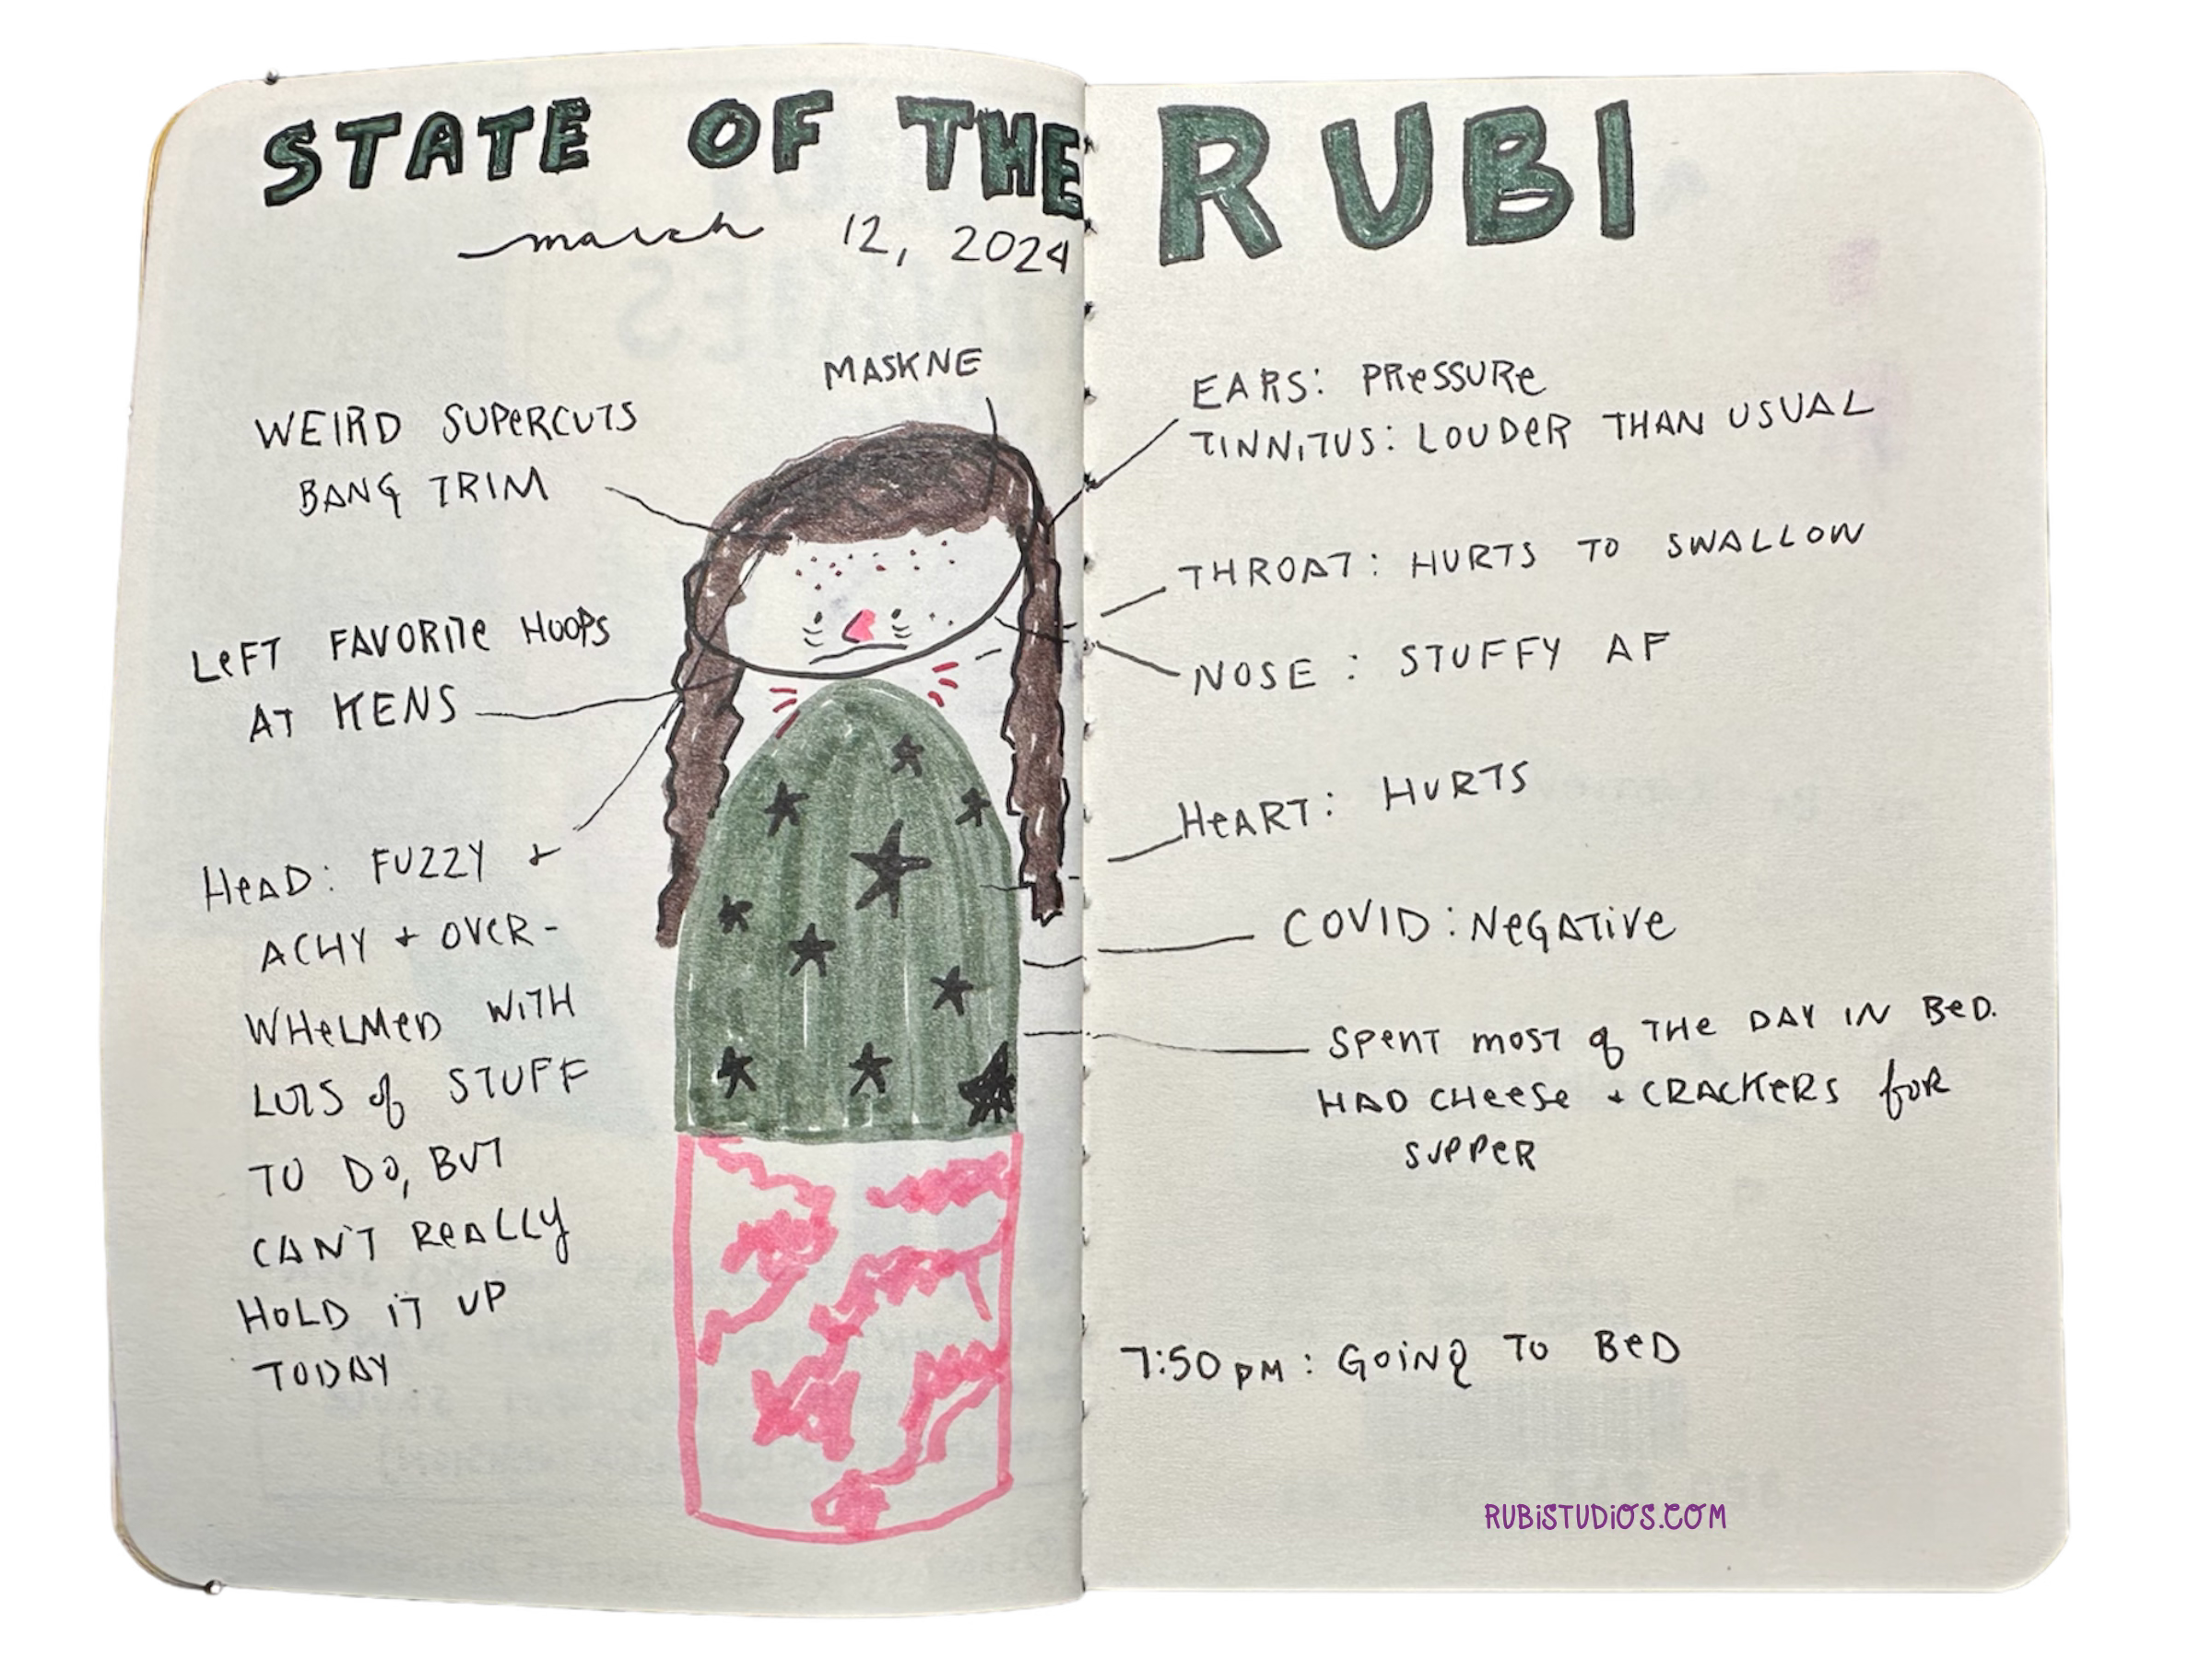 STATE OF THE RUBI
march 12, 2024
MASKNE
WEIRD SUPERCUTS
BANG TRIM
LEFT FAVORITE HOOPS
AT KENS
HEAD: FUZZY +
ACHY + OVER-
WHELMED WITH
LOTS of STUFF
TO DO, BUT
CAN'T REALLY
HOLD IT UP
TODAY
EARS: PRESSURE
TINNITUS: LOUDER THAN USUAL
THROAT: HURTS TO SWALLOW
NOSE: STUFFY AF
HEART: HURTS
COVID: NEGATIVE
SPENT MOST of THE DAY IN BED.
HAD CHEESE + CRACKERS for
SUPPER
7:50 PM: GOING TO BED
RUBISTUDIOS.COM